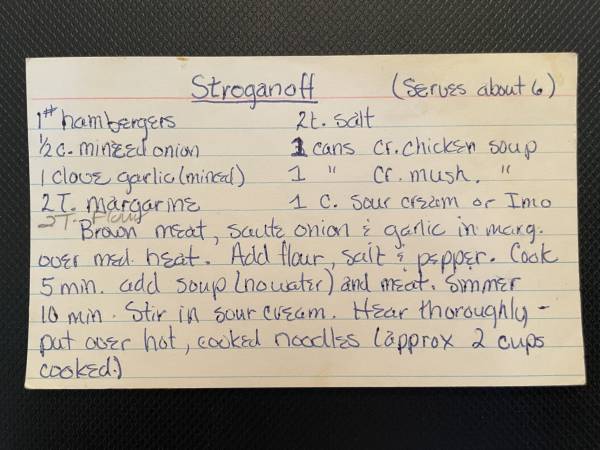 Stroganoff (Serves about 6)
1# hambergers 2t. salt
1/2 c. minzed onion 1 cans cr. chicken soup
1 clove garlic (minced) 1 " cr. mush. "
2 T. margarine 1 c. sour cream or Imo
2 T. flour
Brown meat, saute onion & garlic in marg.
over med. heat. Add flour, salt & pepper. Cook
5 min. add soup (no water) and meat. Simmer
10 min. Stir in sour cream. Hear thoroughly -
put over hot, cooked noodles (approx 2 cups
cooked.)